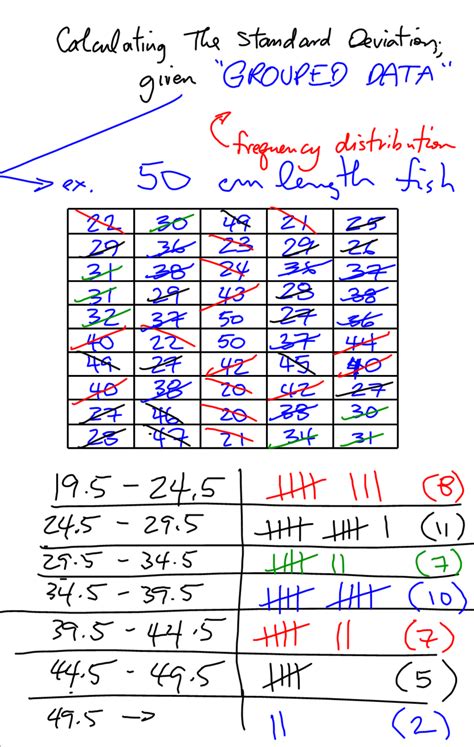 Calculating The Standard Deviation,
given "GROUPED DATA"
frequency distribution
ex. 50 cm length fish
22 30 49 21 25
29 36 23 29 26
31 38 24 36 37
31 29 43 28 38
32 37 50 27 36
40 22 50 37 44
49 27 42 45 40
40 38 20 42 27
27 46 20 38 30
28 47 21 34 31
19.5 - 24.5 (8)
24.5 - 29.5 (11)
29.5 - 34.5 (7)
34.5 - 39.5 (10)
39.5 - 44.5 (7)
44.5 - 49.5 (5)
49.5 → (2)